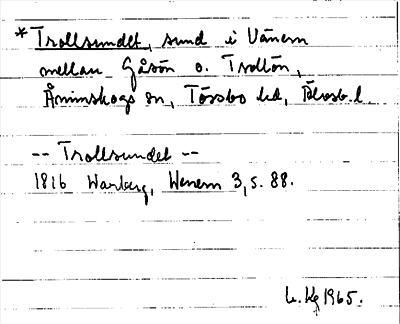 *Trollsundet, sund i Vänern
mellan Gåsön o. Trollön,
Åminskogs sn, Tössbo hd, Älvsb. l.
-- Trollsundet --
1816 Warberg, Wenern 3, s. 88.
Kg 1965.